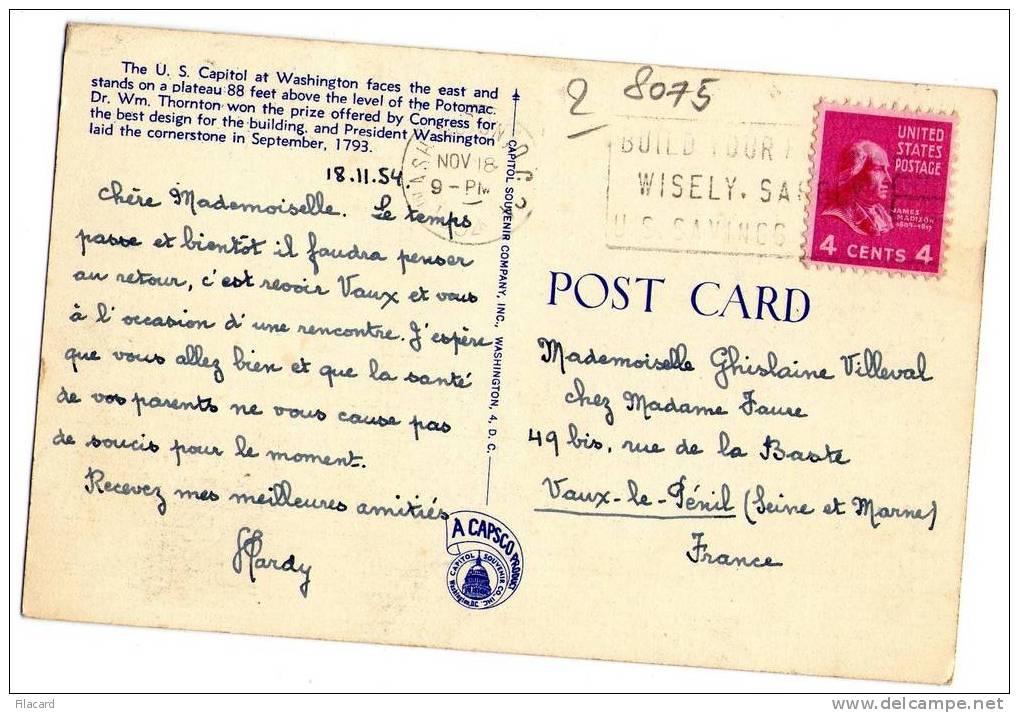 The U. S. Capitol at Washington faces the east and
stands on a plateau 88 feet above the level of the Potomac.
Dr. Wm. Thornton won the prize offered by Congress for
the best design for the building, and President Washington
laid the cornerstone in September, 1793.
18.11.54.
Chère Mademoiselle. Le temps
passe et bientôt il faudra penser
au retour, c'est revoir Vaux et vous
à l'occasion d'une rencontre. J'espère
que vous allez bien et que la santé
de vos parents ne vous cause pas
de soucis pour le moment.
Recevez mes meilleures amitiés
Hardy
CAPITOL SOUVENIR COMPANY, INC., WASHINGTON, 4, D. C.
A CAPSCO PRODUCT
CAPITOL SOUVENIR CO. INC.
Washington, D.C.
2 8075
NOV 18
9 - PM
BUILD YOUR
WISELY, SA
U.S. SAVINGS
UNITED
STATES
POSTAGE
JAMES
MADISON
1809-1817
4 CENTS 4
POST CARD
Mademoiselle Ghislaine Villeval
chez Madame Faure
49 bis, rue de la Baste
Vaux-le-Pénil (Seine et Marne)
France
Filacard
delcampe.net